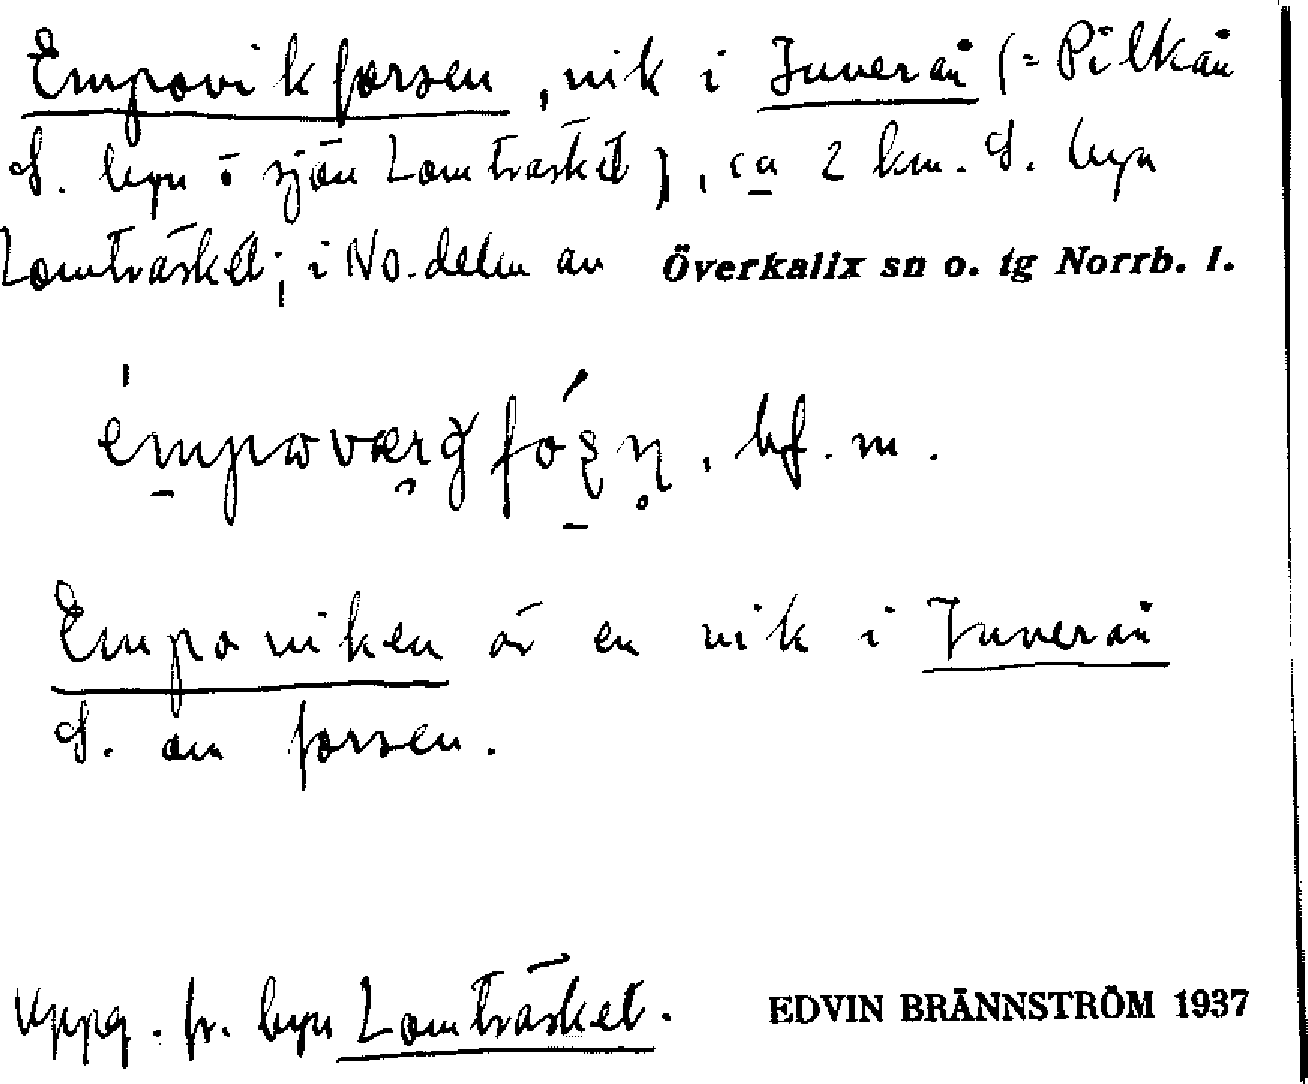 Empovikforsen, vik i Juverån (= Pilkån
S. byn o sjön Lomträsket), ca 2 km. S. byn
Lomträsket; i NO.delen av Överkalix sn o. tg Norrb. l.
bf. m.
Empoviken är en vik i Juverån
S. om forsen.
Uppg. fr. byn Lomträsket. EDVIN BRÄNNSTRÖM 1937